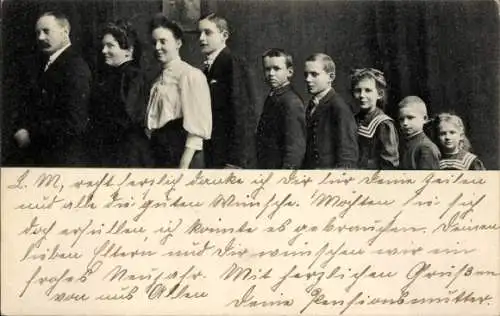 L. M., recht herzlich danke ich Dir für Deine Zeilen
und all die guten Wünsche. Möchten sie sich
doch erfüllen, ich könnte es gebrauchen. Deinen
lieben Eltern und Dir wünschen wir ein
frohes Neujahr. Mit herzlichen Grüßen
von uns Allen
Deine Pensionsmutter.